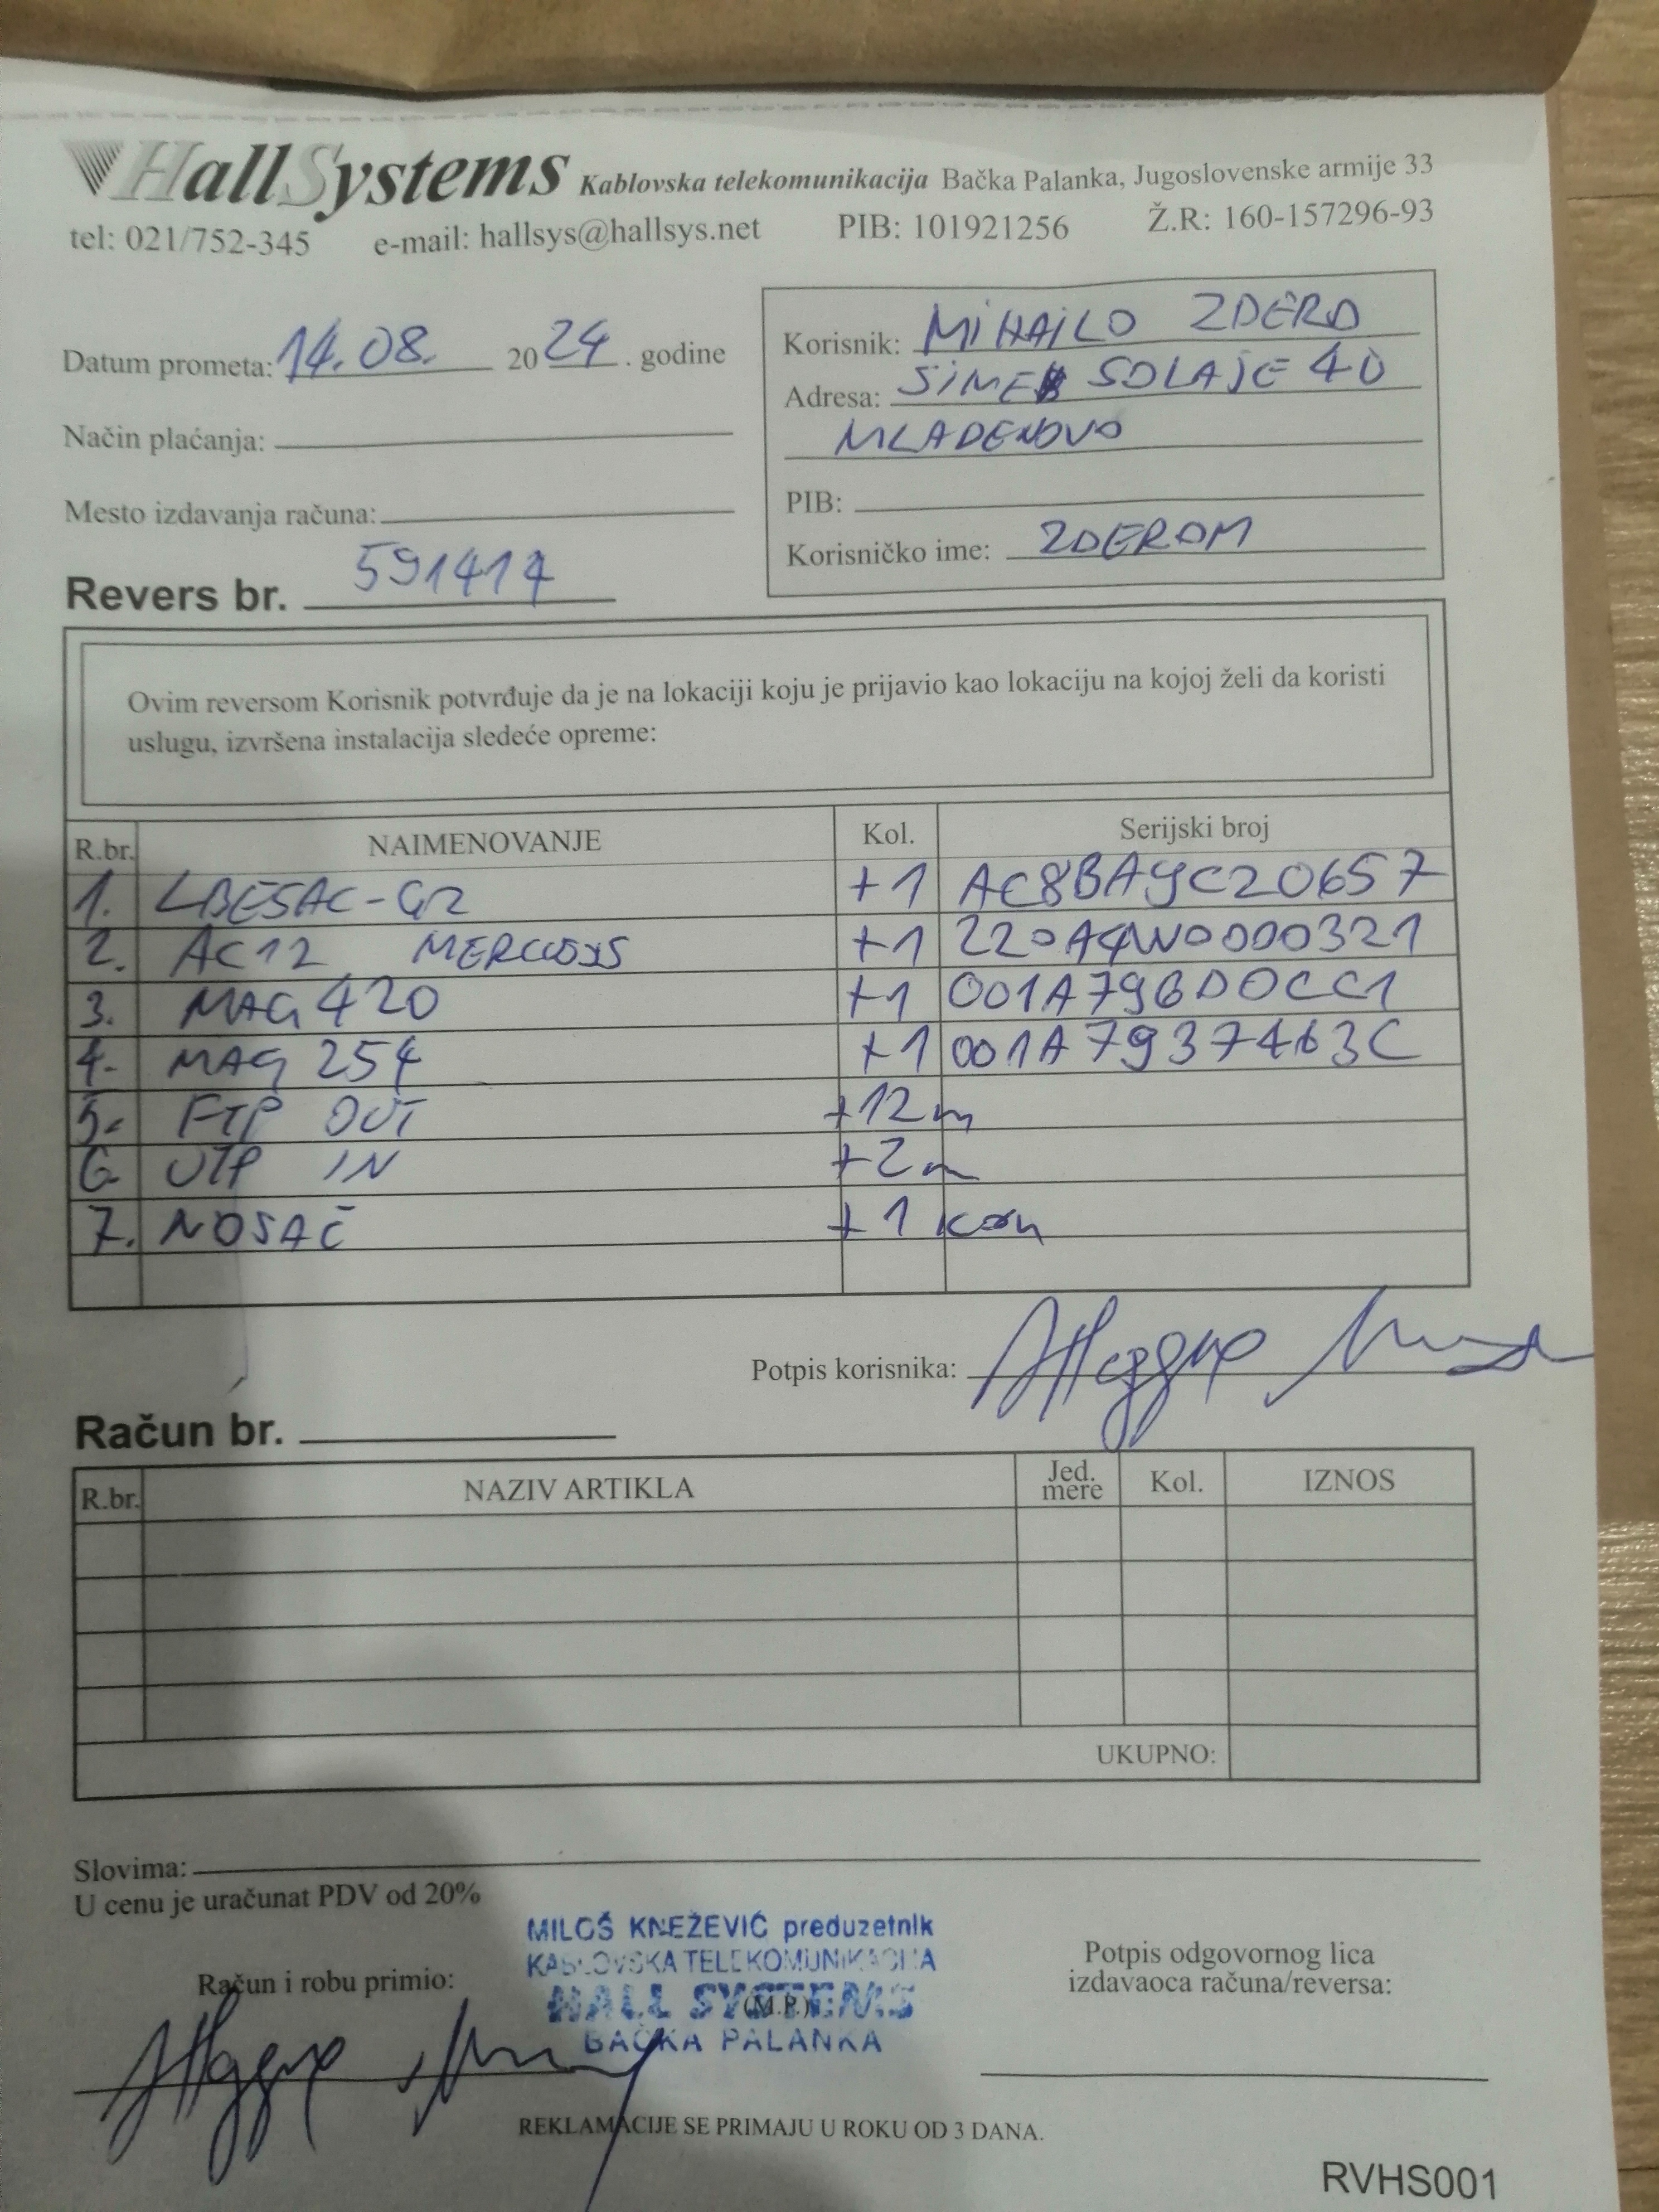 HallSystems Kablovska telekomunikacija Bačka Palanka, Jugoslovenske armije 33
tel: 021/752-345 e-mail: hallsys@hallsys.net PIB: 101921256 Ž.R: 160-157296-93
Datum prometa: 14.08. 2024. godine
Način plaćanja:
Mesto izdavanja računa:
Korisnik: MIHAILO ZDERO
Adresa: SIME SOLAJE 40
MLADENOVO
PIB:
Korisničko ime: ZDEROM
Revers br. 591417
Ovim reversom Korisnik potvrđuje da je na lokaciji koju je prijavio kao lokaciju na kojoj želi da koristi
uslugu, izvršena instalacija sledeće opreme:
R.br. NAIMENOVANJE Kol. Serijski broj
1. LBE5AC-G2 +1 AC8BA9C20657
2. AC12 MERCUSYS +1 220A4W0000321
3. MAG 420 +1 001A796D0CC1
4. MAG 254 +1 001A7937463C
5. FTP OUT +12m
6. UTP IN +2m
7. NOSAČ +1 kom
Potpis korisnika:
Račun br.
R.br. NAZIV ARTIKLA Jed. mere Kol. IZNOS
UKUPNO:
Slovima:
U cenu je uračunat PDV od 20%
MILOŠ KNEŽEVIĆ preduzetnik
KABLOVSKA TELEKOMUNIKACIJA
HALL SYSTEMS
BAČKA PALANKA
Račun i robu primio:
(M.P.)
Potpis odgovornog lica
izdavaoca računa/reversa:
REKLAMACIJE SE PRIMAJU U ROKU OD 3 DANA.
RVHS001